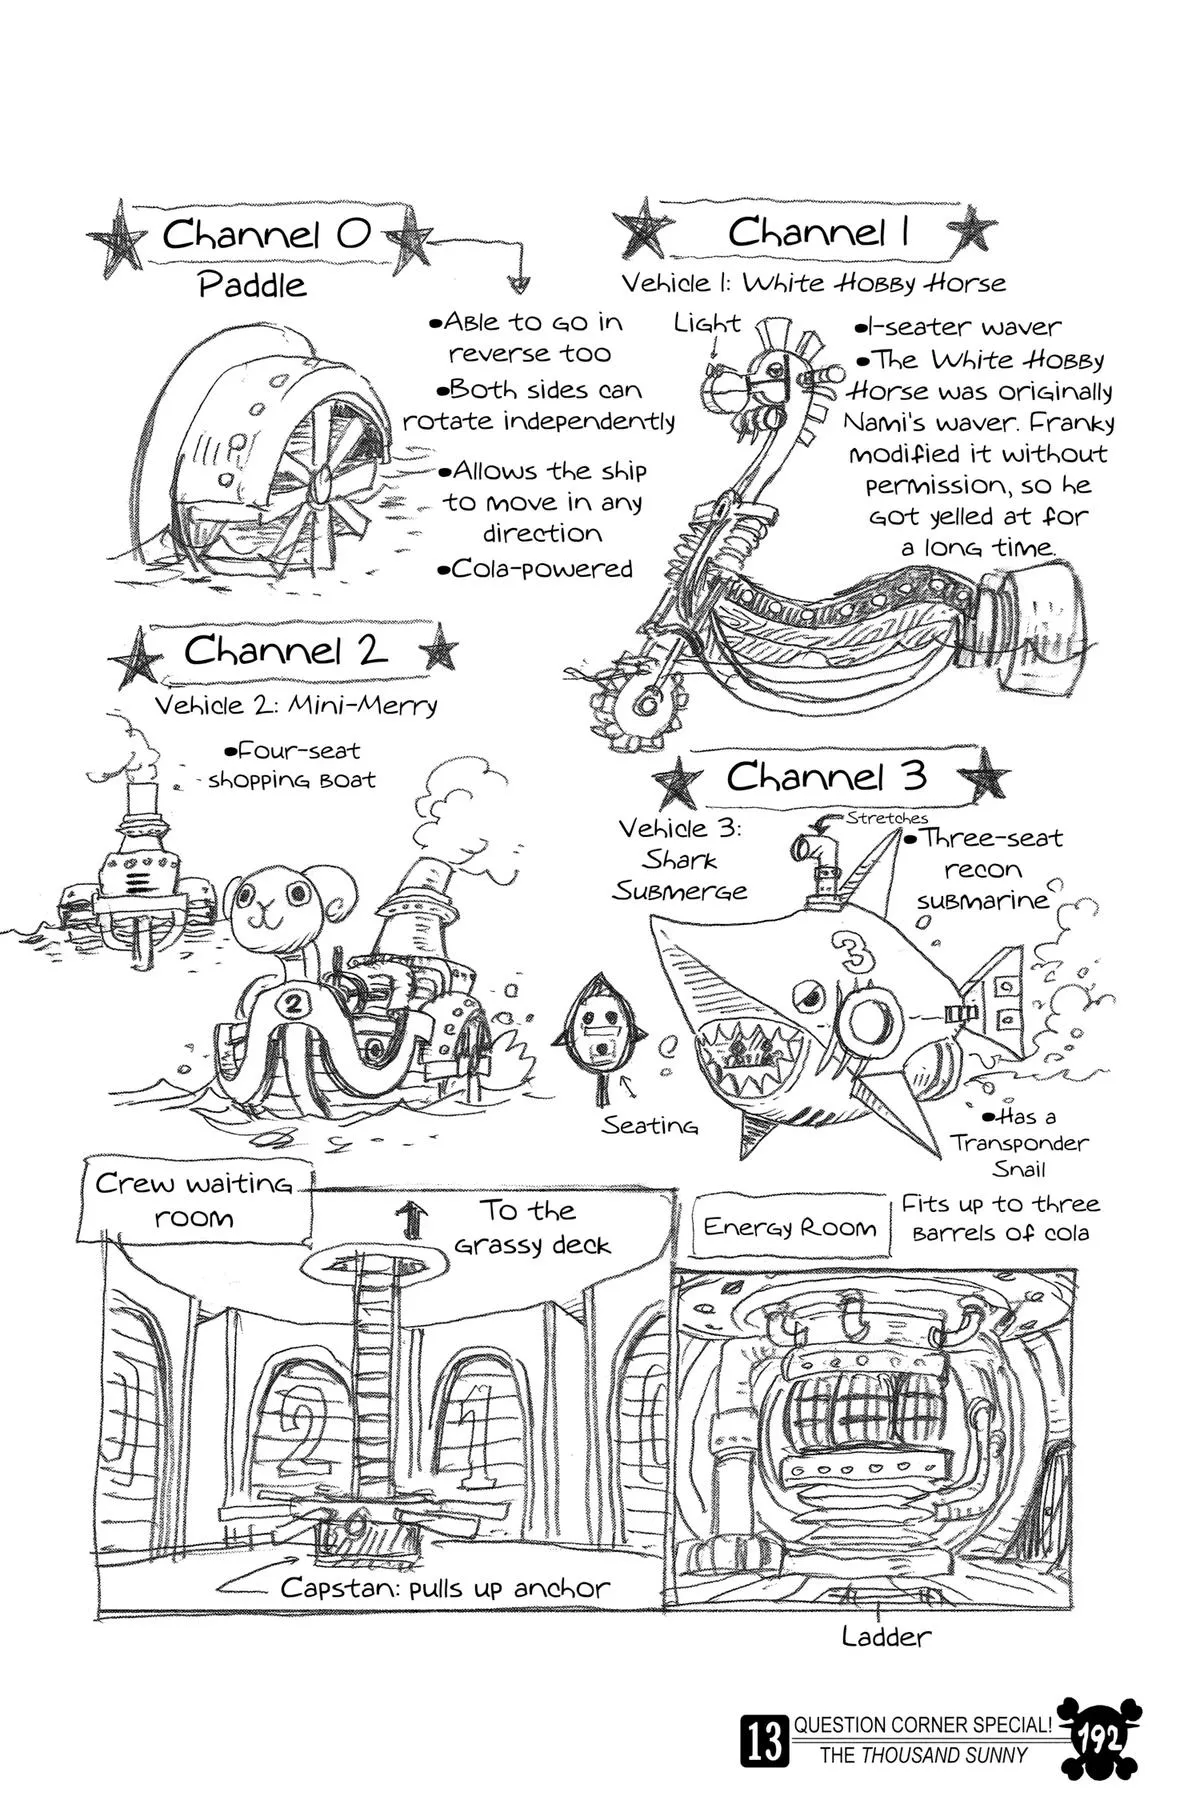 Channel 0
Paddle
•Able to go in
reverse too
•Both sides can
rotate independently
•Allows the ship
to move in any
direction
•Cola-powered
Channel 1
Vehicle 1: White Hobby Horse
Light
•1-seater waver
•The White Hobby
Horse was originally
Nami's waver. Franky
modified it without
permission, so he
got yelled at for
a long time.
Channel 2
Vehicle 2: Mini-Merry
•Four-seat
shopping boat
2
Channel 3
Vehicle 3:
Shark
Submerge
Stretches
•Three-seat
recon
submarine
3
Seating
•Has a
Transponder
Snail
Crew waiting
room
To the
grassy deck
2
1
Capstan: pulls up anchor
Energy Room
Fits up to three
barrels of cola
Ladder
13 QUESTION CORNER SPECIAL!
THE THOUSAND SUNNY
192